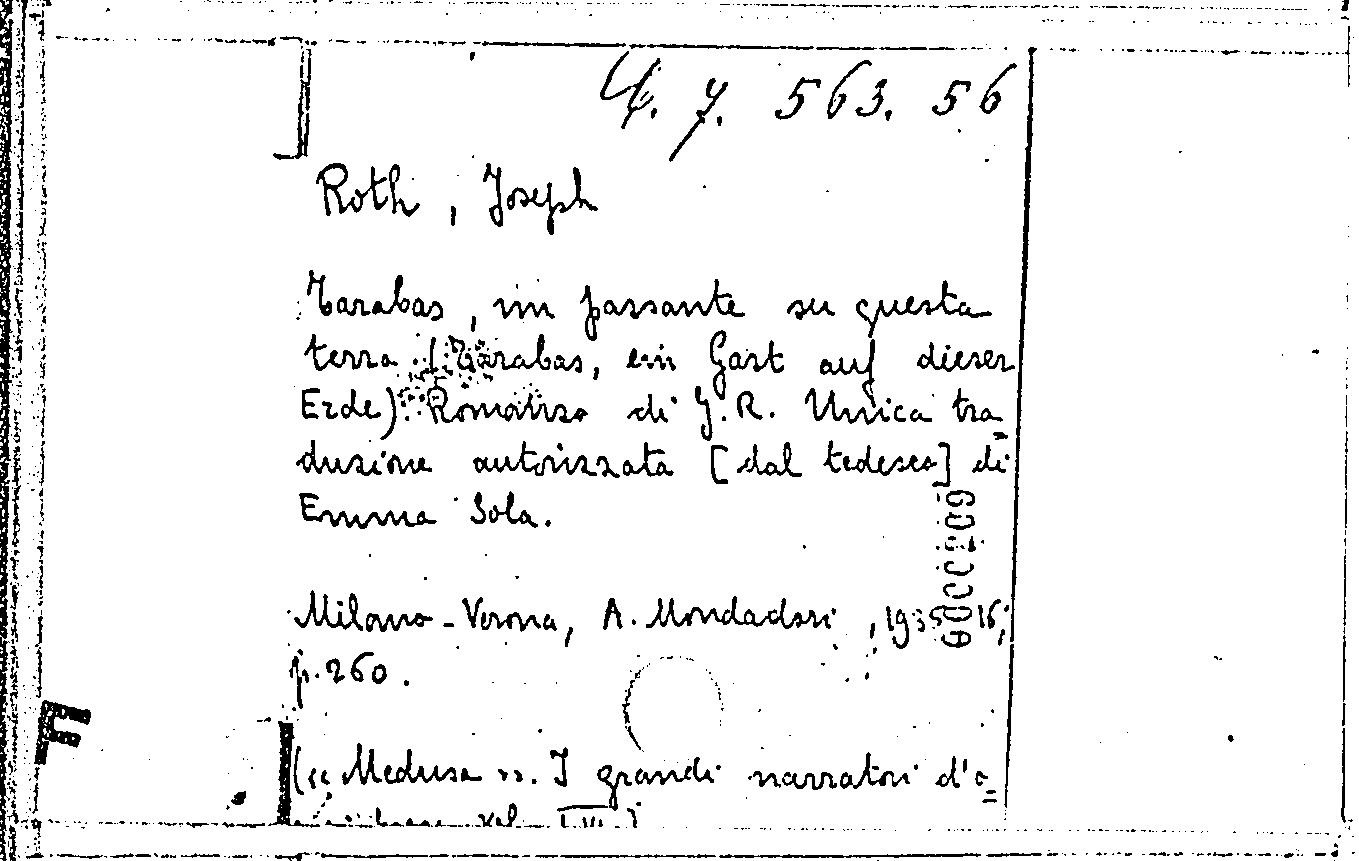 4. 7. 563. 56
Roth, Joseph
Tarabas, un passante su questa
terra (Tarabas, ein Gast auf dieser
Erde). Romanzo di J. R. Unica tra-
duzione autorizzata [dal tedesco] di
Emma Sola.
Milano-Verona, A. Mondadori, 16;
p. 260.
(«Medusa». I grandi narratori d'o=
vol.
F